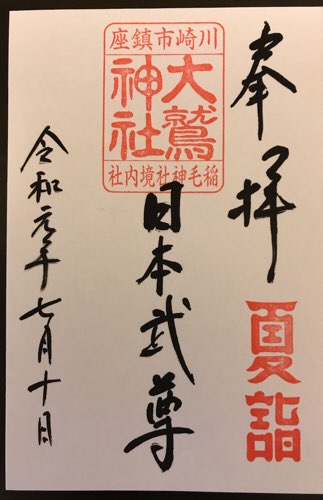 奉拝
夏詣
川崎市鎮座
大鷲神社
稲毛神社境内社
日本武尊
令和元年七月十日